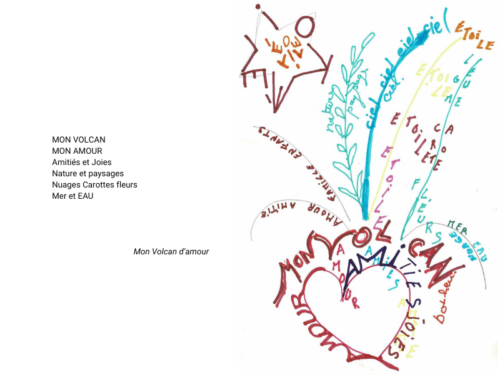 MON VOLCAN
MON AMOUR
Amitiés et Joies
Nature et paysages
Nuages Carottes fleurs
Mer et EAU
Mon Volcan d'amour
ETOILE
ciel ciel ciel ciel
ETOILE
nature
paysage
ciel
LEGUME
ETOILE
CAROTE
ETOILE
ETOILE
FAMILLE ENFANTS
AMOUR AMITIE
FLEURS
MER EAU
NUAGE
MON VOLCAN
AMITIES JOIES
AMOUR
AMIS
AMOUR